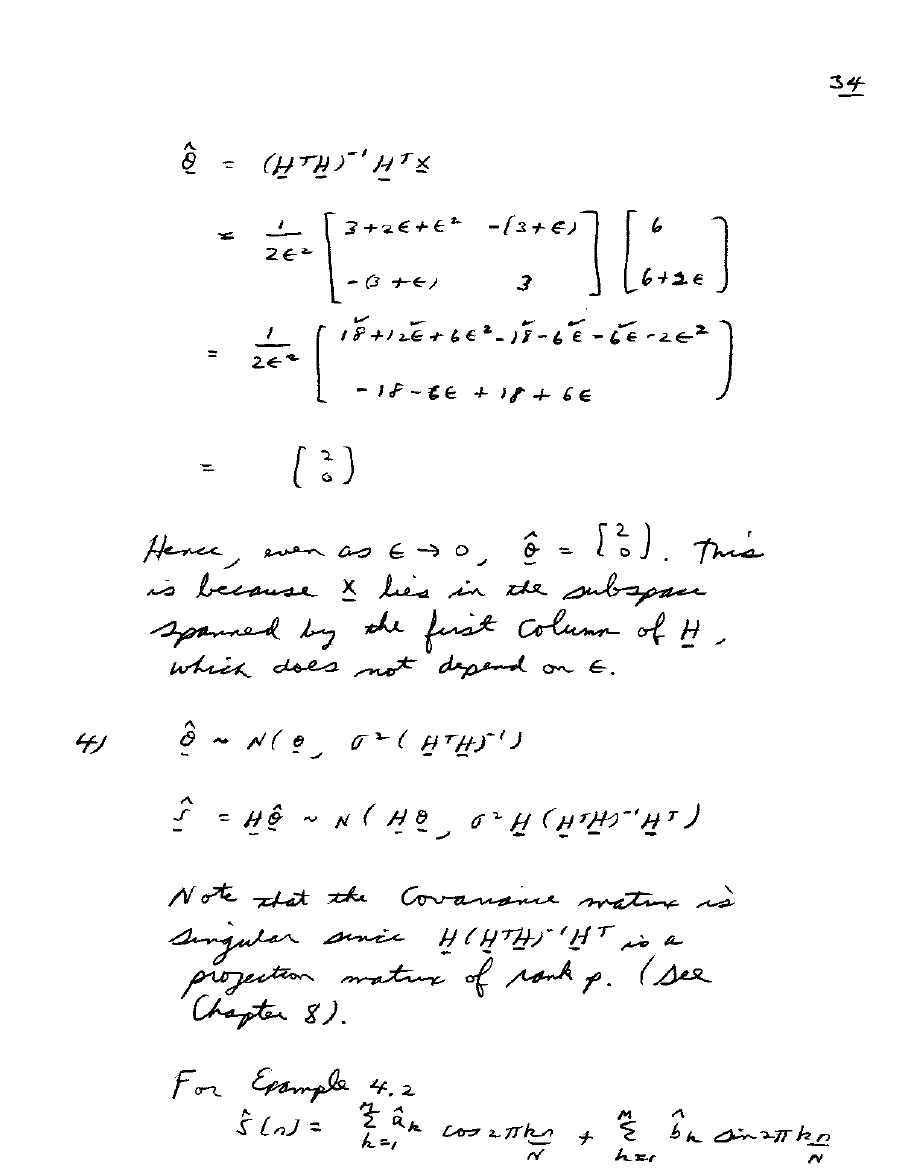 34
θ̂ = (HᵀH)⁻¹ Hᵀ x
= 1/(2ε²) [ 3+2ε+ε² -(3+ε) ; -(3+ε) 3 ] [ 6 ; 6+2ε ]
= 1/(2ε²) [ 18+12ε+6ε²-18-6ε-6ε-2ε² ; -18-6ε+18+6ε ]
= [ 2 ; 0 ]
Hence, even as ε → 0, θ̂ = [ 2 ; 0 ]. This
is because x lies in the subspace
spanned by the first column of H,
which does not depend on ε.
4) θ̂ ~ N(θ, σ²(HᵀH)⁻¹)
ŝ = Hθ̂ ~ N(Hθ, σ²H(HᵀH)⁻¹Hᵀ)
Note that the Covariance matrix is
singular since H(HᵀH)⁻¹Hᵀ is a
projection matrix of rank p. (See
Chapter 8).
For Example 4.2
ŝ[n] = Σ_{k=1}^{M} â_k cos 2πkn/N + Σ_{k=1}^{M} b̂_k sin 2πkn/N